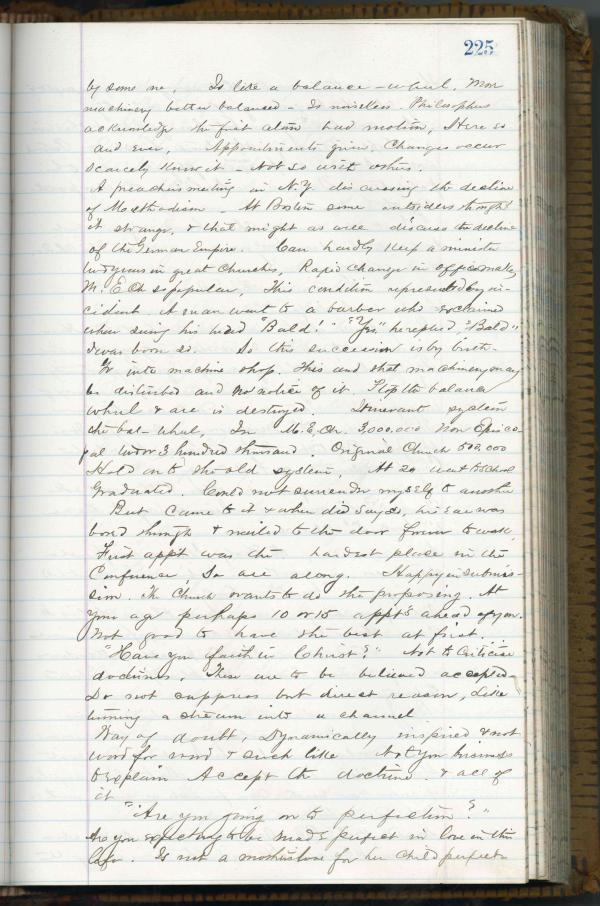 225
by some one, Is like a balance-wheel. Most
machinery better balanced - Is noiseless. Philosophers
acknowledge the first atom had motion, Here so
and ever, Appointments given, Changes occur
scarcely know it - Not so with others.
A preachers meeting in N.Y. discussing the decline
of Methodism - At Boston some outsiders thought
it strange, & that might as well discuss the decline
of the German Empire. Can hardly keep a minister
two years in great Churches, Rapid change in office makes
M. E Ch so popular, This condition represented by in-
cident. A man went to a barber who exclaimed
when seeing his head "Bald!" "Yes" he replied, "Bald"
I was born so. So this succession is by birth.
Go into machine shop. This and that machinery may
be disturbed and no notice of it. Stop the balance
wheel & all is destroyed. Itinerant system
the bal-wheel, In M. E. Ch. 3,000,000 Non Episco-
pal two or 3 hundred thousand. Original Church 500,000
Hold on to the old system, At 20 went to school
Graduated. Could not surrender myself to another
But came to it & when did say so, his ear was
bored through & nailed to the door forever to wait.
First appt was the hardest place in the
Conference, So all along. Happy in submis-
sion. The Church wants to do the proposing. At
your age perhaps 10 or 15 appts ahead of you.
Not good to have the best at first.
"Have you faith in Christ?" Not to Criticise
doctrines. These are to be believed accepted
Do not suppress but direct reason, Like
turning a stream into a channel
Way of doubt, Dynamically inspired & not
word for word & such like Not your business
to explain Accept the doctrine. & all of
it
"Are you going on to perfection?"
Are you expecting to be made perfect in love in this
life. Is not a mothers love for her child perfect